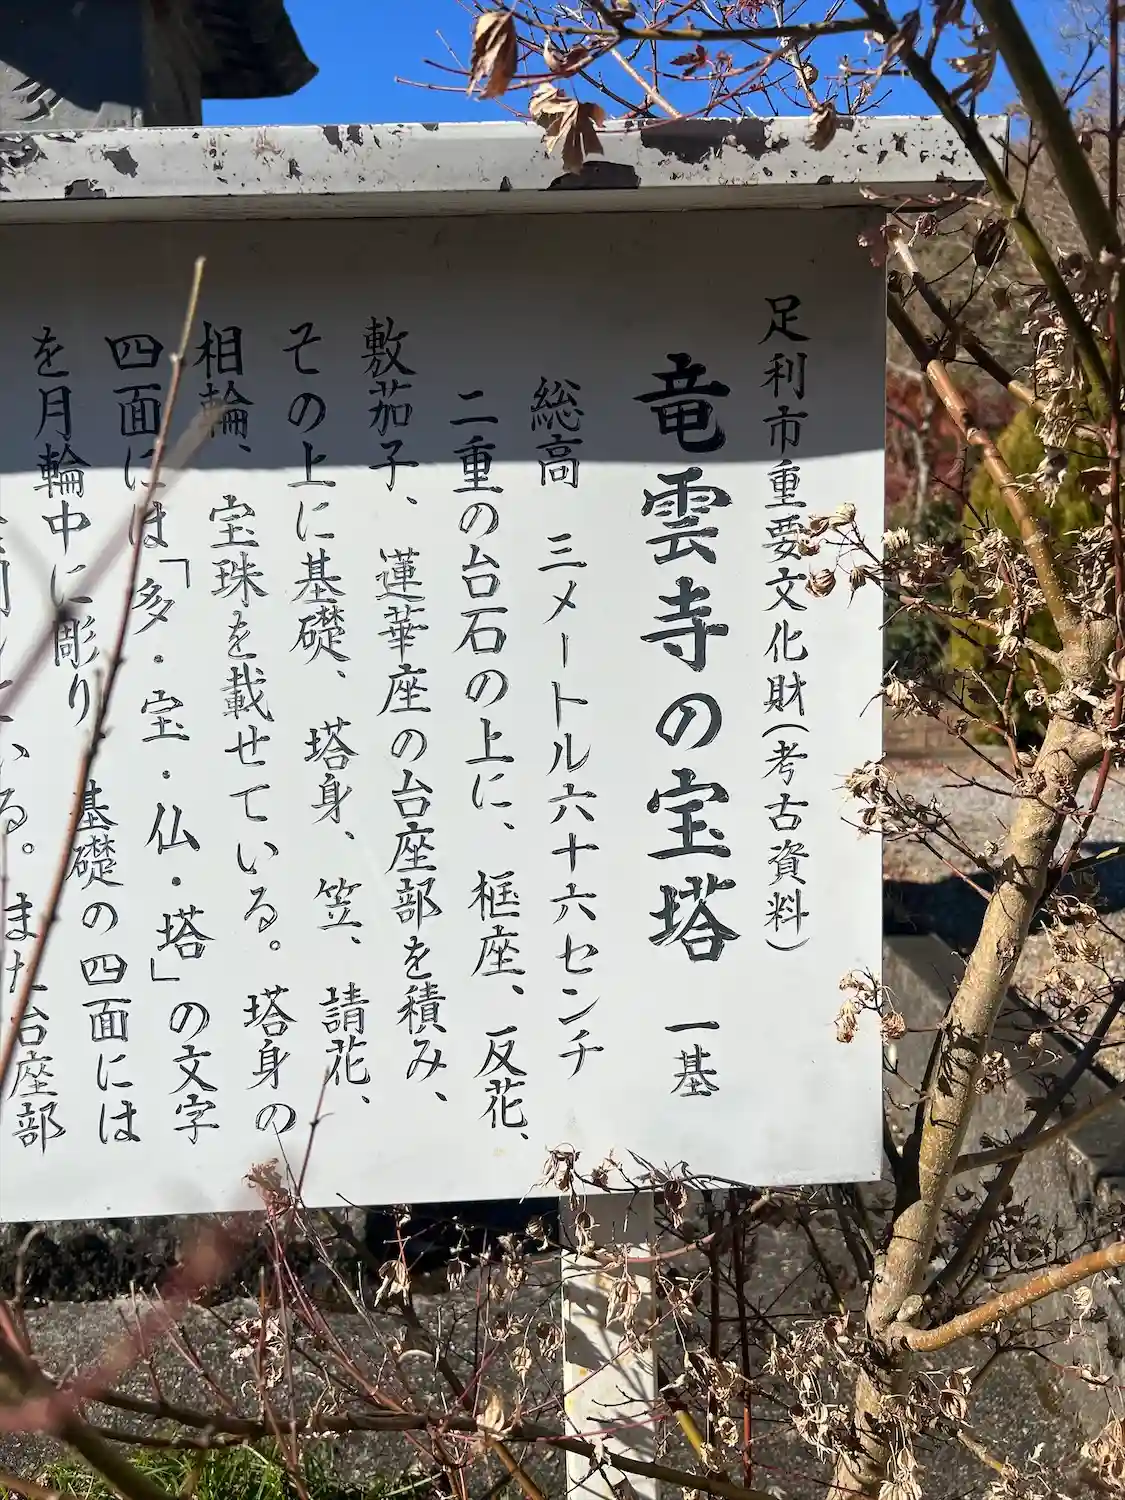 足利市重要文化財(考古資料)
竜雲寺の宝塔 一基
総高 三メートル六十六センチ
二重の台石の上に、框座、反花、
敷茄子、蓮華座の台座部を積み、
その上に基礎、塔身、笠、請花、
相輪、宝珠を載せている。塔身の
四面には「多・宝・仏・塔」の文字
を月輪中に彫り、基礎の四面には
いる。また台座部